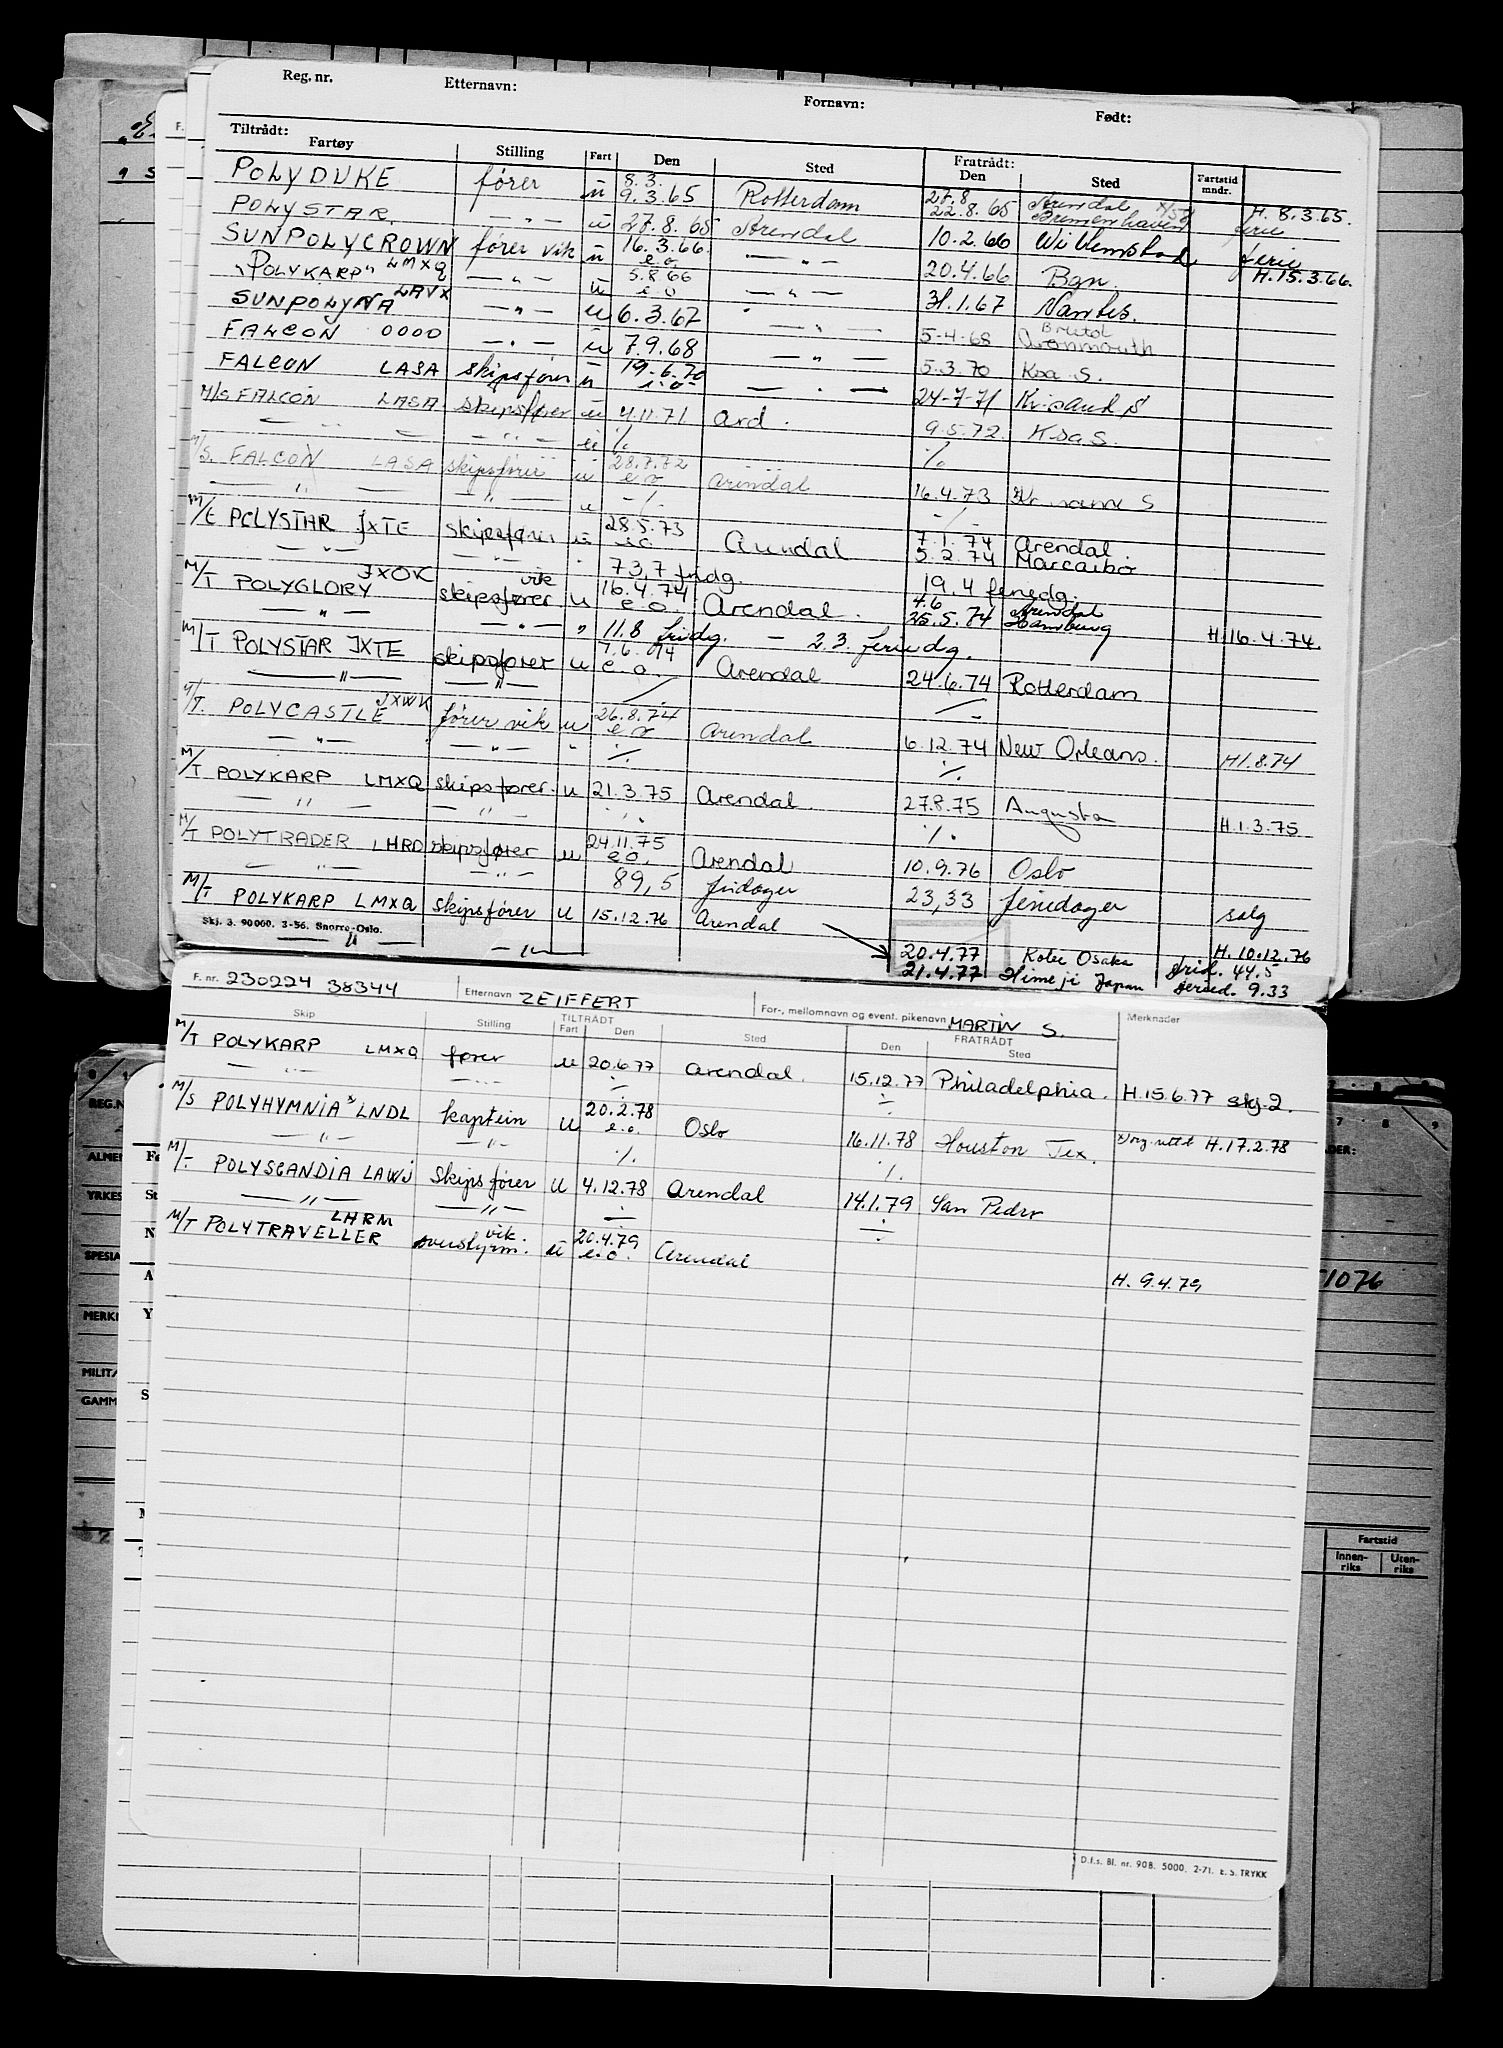 Reg. nr. Etternavn: Fornavn: Født:
Tiltrådt: Fratrådt:
Fartøy Stilling Fart Den Sted Den Sted Fartstid mndr.
POLYDUKE fører u 8.3. 9.3.65 Rotterdam 27.8 22.8.65 Arendal Bremerhaven H. 8.3.65. ferie
POLYSTAR — " — u 27.8.65 Arendal 10.2.66 Willemstad ferie
SUNPOLYCROWN fører vik u 16.3.66. e.o. — " — 20.4.66 Bgn. H.15.3.66.
"POLYKARP" LMXQ — " — u 5.8.66 e o — " — 31.1.67 Nantes.
SUNPOLYNA LAVX — " — u 6.3.67 — " — 5-4-68 Bristol Avonmouth
FALCON OOOO — " — u 7.9.68 — " — 5.3.70 Krsa S.
FALCON LASA skipsfører u 19.6.70 e.o. — " — 24-7-71 Kr.sand S
M/S FALCON LASA skipsfører u 4.11.71 Ard. 9.5.72. KsaS.
— " — — " — u ·/. ·/.
M/S. FALCON LASA skipsfører u 28.7.72 e o Arendal 16.4.73 Kr. sand S
— " — — " — u -/- -/-
M/T POLYSTAR JXTE skipsfører u 28.5.73 e.o. Arendal 7.1.74 Arendal.
— " — — " — 5.2.74 Marcaibo
73,7 fridg. 19,4 feriedg.
M/T POLYGLORY JXOK skipsfører vik u 16.4.74 e.o. Arendal. 4.6 25.5.74 Arendal Hamburg H.16.4.74.
— " — — " — " 11.8 fridg. — 2.3. feriedg.
M/T POLYSTAR JXTE skipsfører u 7.6.74 e.o. Arendal 24.6.74 Rotterdam
— " — — " —
M/T. POLYCASTLE JXWK fører vik u 26.8.74 e o Arendal 6.12.74 New Orleans. H1.8.74
— " — — " — " ·/. ·/.
M/T POLYKARP LMXQ skipsfører u 21.3.75 Arendal. 27.8.75 Augusta H.1.3.75
— " — — " — ·/. ·/.
M/T POLYTRADER LHRD skipsfører u 24.11.75 e.o. Arendal 10.9.76 Oslo
— " — — " — 89,5 fridager 23,33 feriedager salg
M/T POLYKARP LMXQ skipsfører u 15.12.76 Arendal 20.4.77 Kobe Osaka H.10.12.76
Skj. 3. 90 000. 3-56. Snorre-Oslo.
— " — — " — 21.4.77 Himeji Japan frid. 44.5 feried. 9.33
F. nr. 230224 38344 Etternavn ZEIFFERT For-, mellomnavn og event. pikenavn MARTIN S. Merknader
Skip Stilling TILTRÅDT Fart Den Sted FRATRÅDT Den Sted
M/T POLYKARP LMXQ fører u 20.6.77 Arendal. 15.12.77 Philadelphia. H.15.6.77 skj.2.
— " — — " — ÷ ÷
M/S POLYHYMNIA LNDL kaptein u 20.2.78 e.o. Oslo 16.11.78 Houston Tex. H.17.2.78
— " — — " — ·/. ·/.
M/T POLYSCANDIA LAWJ Skipsfører u 4.12.78 Arendal 14.1.79 San Pedro
— " — — " — ÷ ÷
M/T POLYTRAVELLER LHRM overstyrm. vik. u 20.4.79 e.o. Arendal H. 9.4.79
D.f.s. Bl. nr. 908. 5000. 2-71. E. S. TRYKK
REG.N
ALMEN
YRKES
SPESIA
MERKN
MILITA
GAMM
7 8 9
1076
Fartstid
Innenriks Utenriks